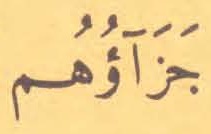 جَزَآؤُهُم